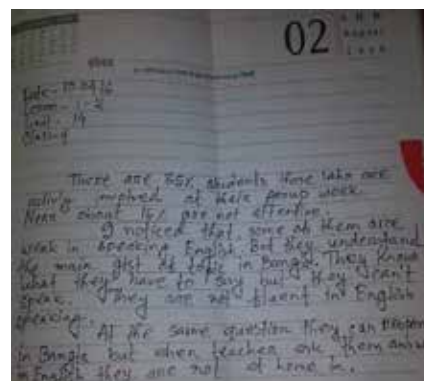 02
Date -
Lesson -
Unit - 14
There are 85% students those who are
activly involved at their group work.
Near about 15% are not attentive.
I noticed that some of them are
weak in speaking English. But they understand
the main gist of topic in Bangla. They know
what they have to say but they can't
speak. They are not fluent in English
speaking.
At the same question they can
in Bangla but when teacher ask them answer
in English they are not at home in.